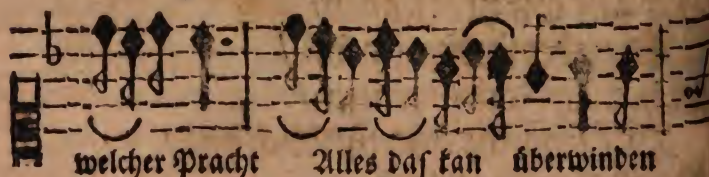 welcher Pracht Alles daſ kan überwinden